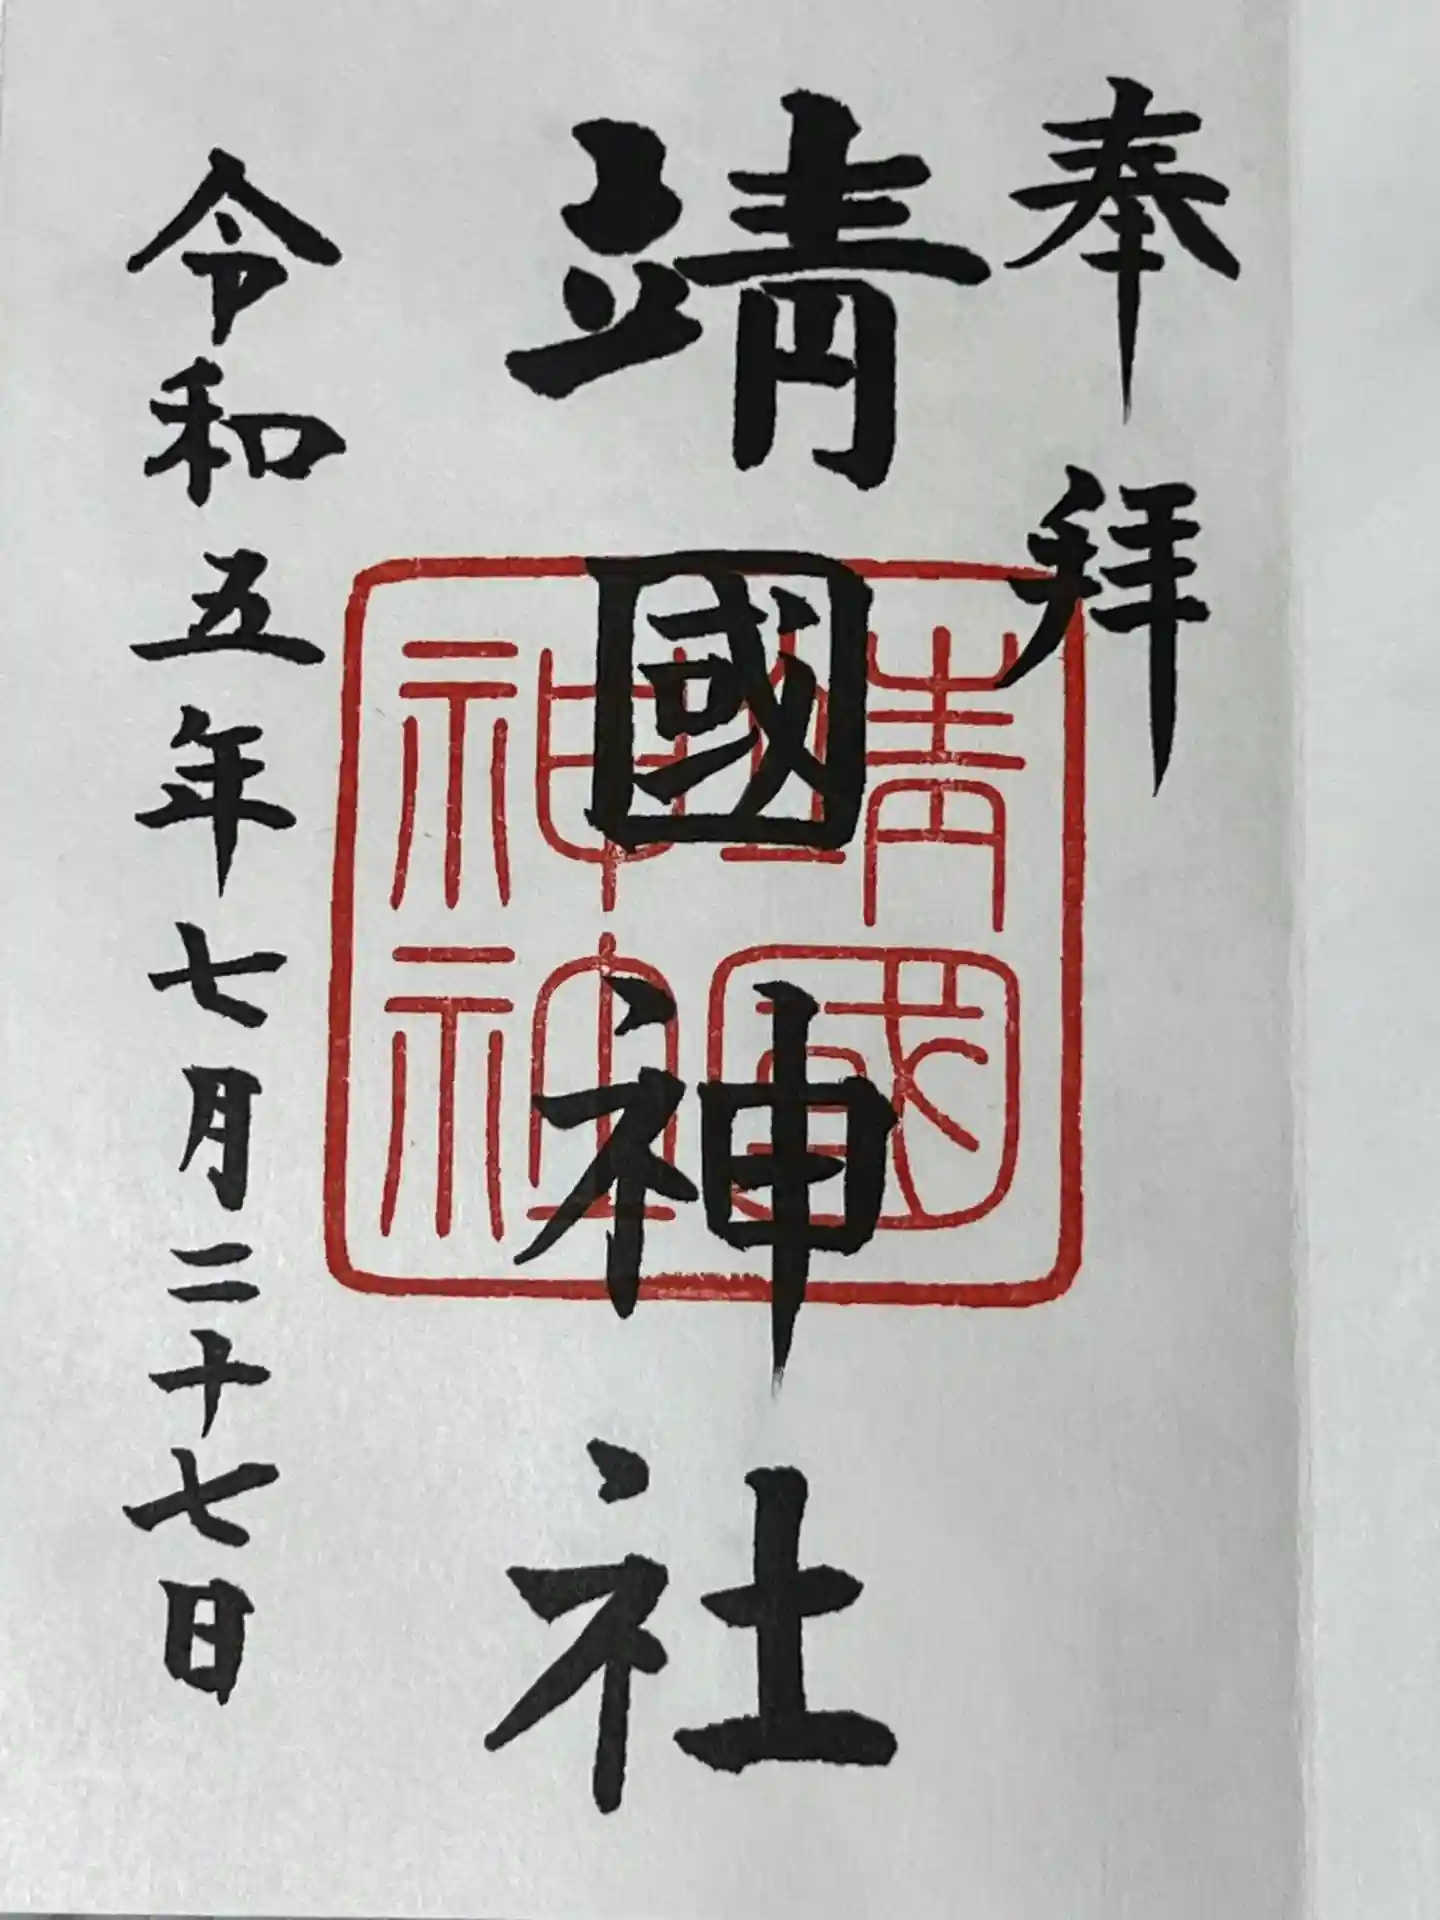 奉拝
靖國神社
靖國神社
令和五年七月二十七日